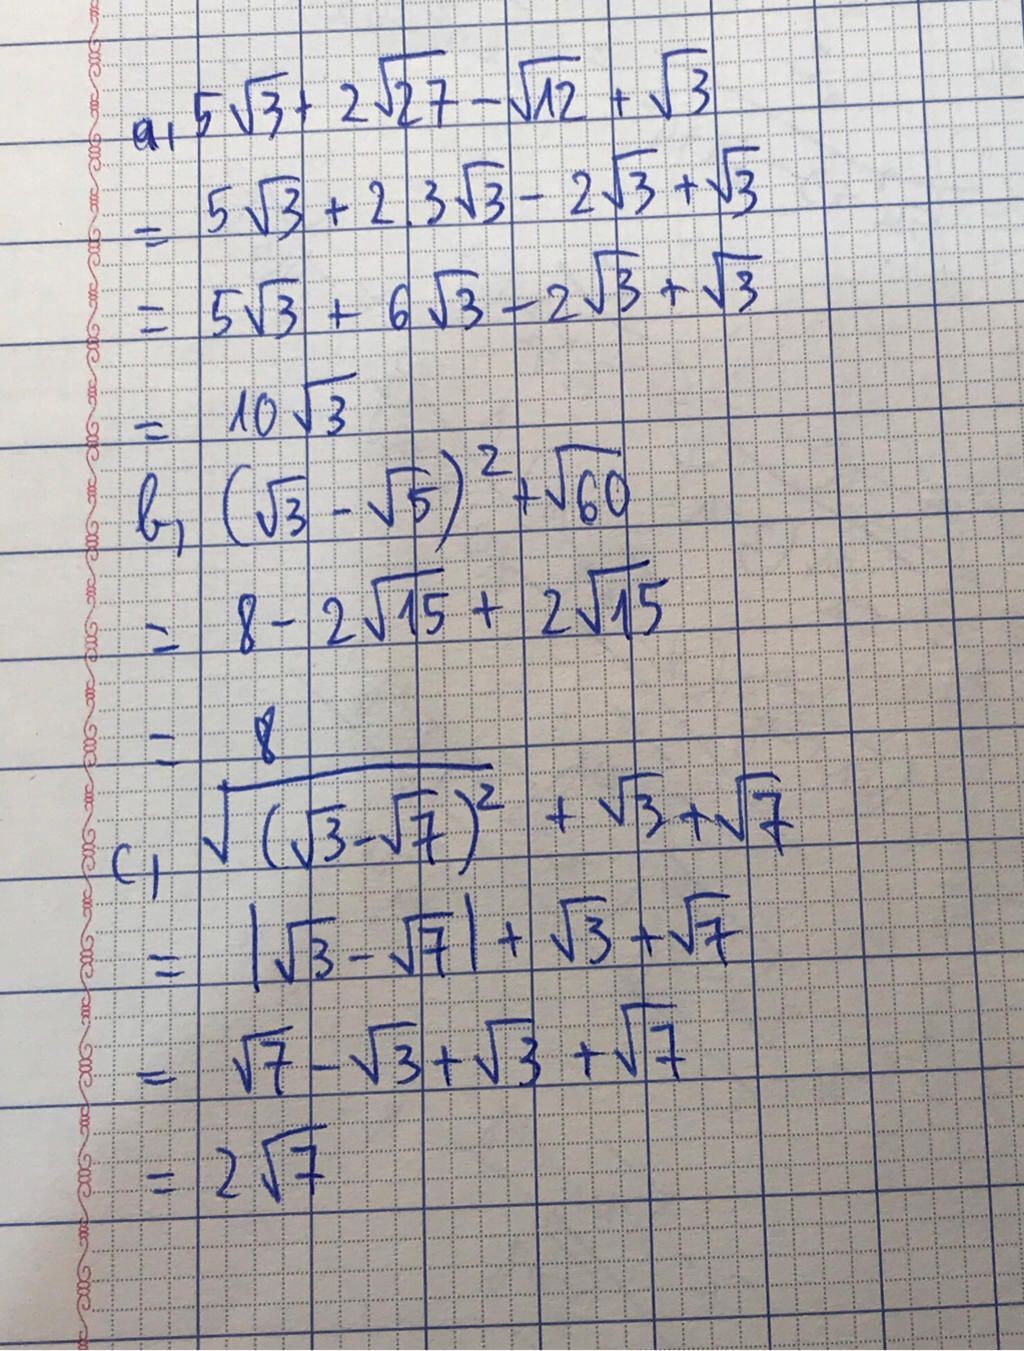 a, 5√3 + 2√27 - √12 + √3
= 5√3 + 2.3√3 - 2√3 + √3
= 5√3 + 6√3 - 2√3 + √3
= 10√3
b, (√3 - √5)² + √60
= 8 - 2√15 + 2√15
= 8
c, √(√3 - √7)² + √3 + √7
= |√3 - √7| + √3 + √7
= √7 - √3 + √3 + √7
= 2√7